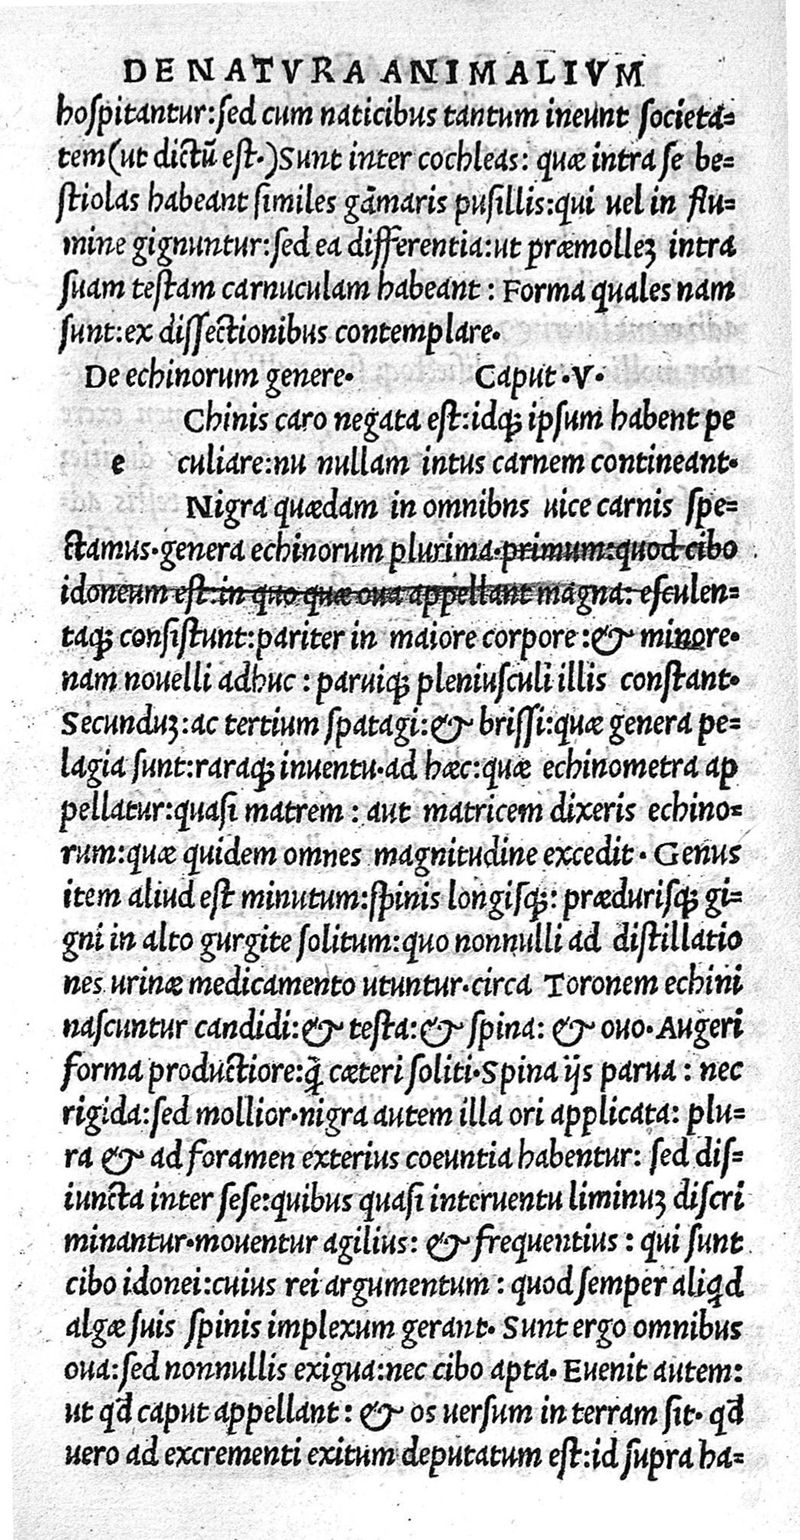 DE NATVRA ANIMALIVM
hoſpitantur:ſed cum naticibus tantum ineunt ſocieta=
tem(ut dictū eſt.)Sunt inter cochleas: quæ intra ſe be=
ſtiolas habeant ſimiles gāmaris puſillis:qui uel in flu=
mine gignuntur:ſed ea differentia:ut præmolleꝫ intra
ſuam teſtam carnuculam habeant : Forma quales nam
ſunt:ex diſſectionibus contemplare.
De echinorum genere. Caput .V.
Chinis caro negata eſt:idqꝫ ipſum habent pe
e culiare:nu nullam intus carnem contineant.
Nigra quædam in omnibns uice carnis ſpe=
ctamus.genera echinorum plurima.primum:quod cibo
idoneum eſt:in quo quæ oua appellant magna: eſculen=
taqꝫ conſiſtunt:pariter in maiore corpore :& minore.
nam nouelli adhuc : paruiqꝫ pleniuſculi illis conſtant.
Secunduꝫ:ac tertium ſpatagi:& briſſi:quæ genera pe=
lagia ſunt:raraqꝫ inuentu.ad hæc:quæ echinometra ap
pellatur:quaſi matrem : aut matricem dixeris echino=
rum:quæ quidem omnes magnitudine excedit . Genus
item aliud eſt minutum:ſpinis longiſqꝫ: præduriſqꝫ gi=
gni in alto gurgite ſolitum:quo nonnulli ad diſtillatio
nes urinæ medicamento utuntur.circa Toronem echini
naſcuntur candidi:& teſta:& ſpina: & ouo.Augeri
forma productiore:q̄ cæteri ſoliti.Spina ijs parua : nec
rigida:ſed mollior.nigra autem illa ori applicata: plu=
ra & ad foramen exterius coeuntia habentur: ſed diſ=
iuncta inter ſeſe:quibus quaſi interuentu liminuꝫ diſcri
minantur.mouentur agilius: & frequentius : qui ſunt
cibo idonei:cuius rei argumentum : quod ſemper aliꝗd
algæ ſuis ſpinis implexum gerant. Sunt ergo omnibus
oua:ſed nonnullis exigua:nec cibo apta. Euenit autem:
ut qd̄ caput appellant : & os uerſum in terram ſit. qd̄
uero ad excrementi exitum deputatum eſt:id ſupra ha=